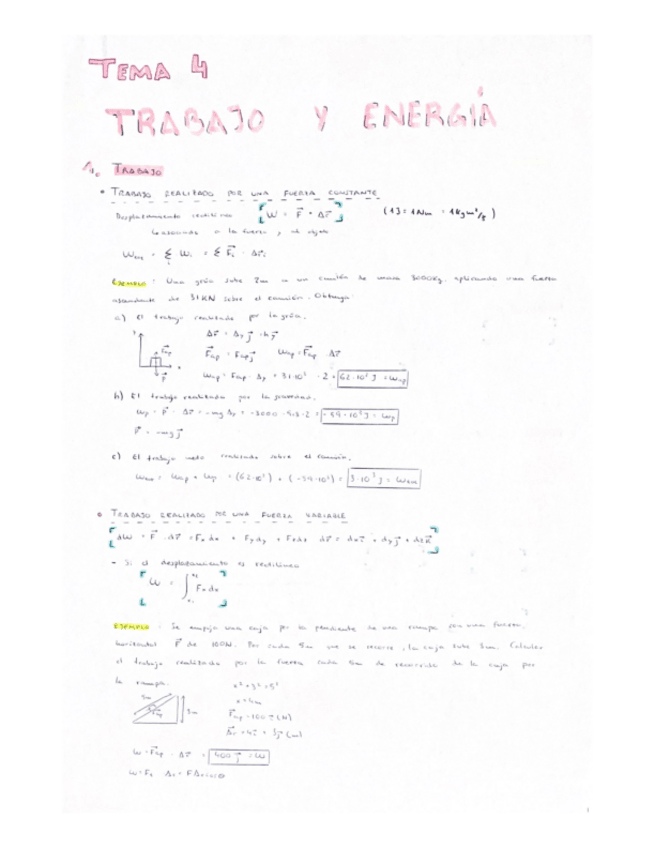 TEMA 4
TRABAJO Y ENERGÍA
1. TRABAJO
• TRABAJO REALIZADO POR UNA FUERZA CONSTANTE
Desplazamiento rectilíneo [W = F⃗ · Δr⃗] (1J = 1Nm = 1kgm²/s)
a la fuerza y al objeto
Wneto = Σ Wi = Σ F⃗i · Δr⃗i
EJEMPLO: Una grúa sube 2m a un camión de masa 3000kg, aplicando una fuerza
ascendente de 31KN sobre el camión. Obtenga:
a) El trabajo realizado por la grúa.
Δr⃗ = Δy j⃗
F⃗ap = Fap j⃗ Wap = F⃗ap · Δr⃗
Wap = Fap · Δy = 31·10³ · 2 = 62·10³ J = Wap
b) El trabajo realizado por la gravedad.
Wp = P⃗ · Δr⃗ = -mg Δy = -3000 · 9.8 · 2 = -59·10³ J = Wp
P⃗ = -mg j⃗
c) El trabajo neto realizado sobre el camión.
Wneto = Wap + Wp = (62·10³) + (-59·10³) = 3·10³ J = Wneto
• TRABAJO REALIZADO POR UNA FUERZA VARIABLE
[dW = F⃗ · dr⃗ = Fx dx + Fy dy + Fz dz dr⃗ = dx i⃗ + dy j⃗ + dz k⃗]
- Si el desplazamiento es rectilíneo
[W = ∫ Fx dx]
EJEMPLO: Se empuja una caja por la pendiente de una rampa con una fuerza
horizontal F⃗ de 100N. Por cada 5m que se recorre, la caja sube 3m. Calcular
el trabajo realizado por la fuerza cada 5m de recorrido de la caja por
la rampa.
x² + 3² = 5²
5m
x = 4m
3m
F⃗ap = 100 i⃗ (N)
Δr⃗ = 4i⃗ + 3j⃗ (m)
W = F⃗ap · Δr⃗ = 400 J = W